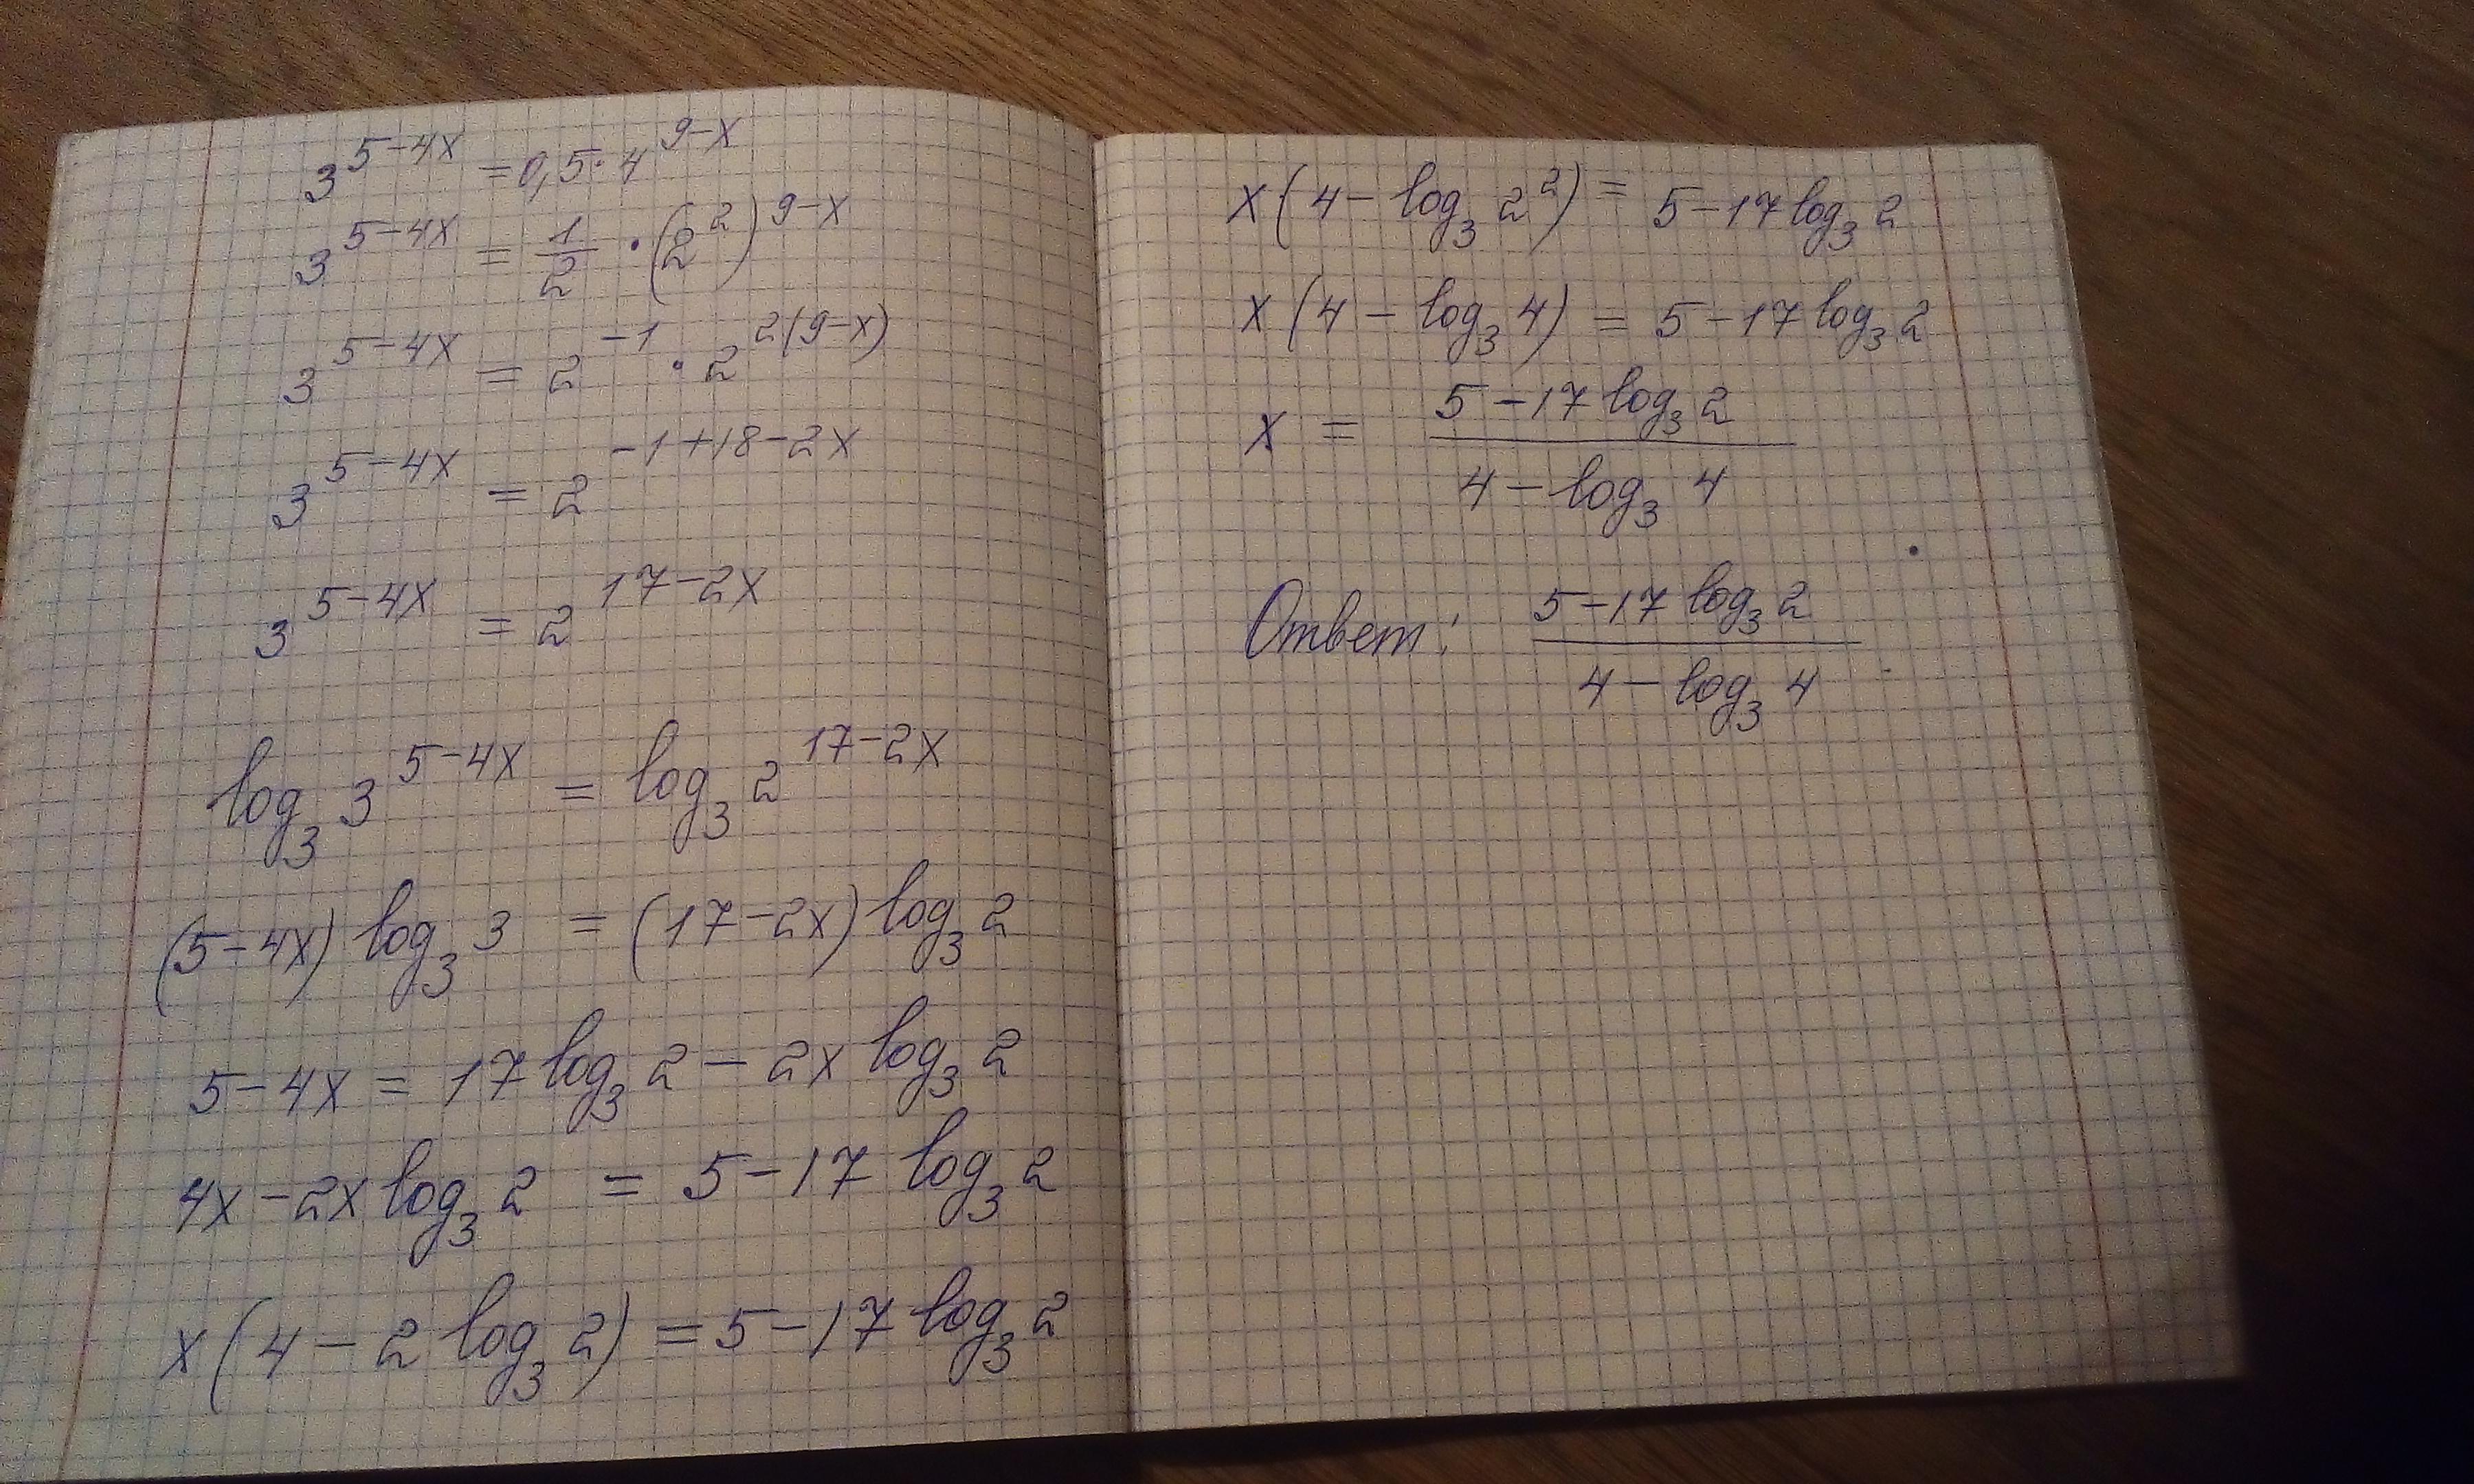 3^(5-4x) = 0,5·4^(9-x)
3^(5-4x) = 1/2 · (2^2)^(9-x)
3^(5-4x) = 2^(-1) · 2^(2(9-x))
3^(5-4x) = 2^(-1+18-2x)
3^(5-4x) = 2^(17-2x)
log_3 3^(5-4x) = log_3 2^(17-2x)
(5-4x) log_3 3 = (17-2x) log_3 2
5-4x = 17 log_3 2 - 2x log_3 2
4x-2x log_3 2 = 5-17 log_3 2
x(4-2 log_3 2) = 5-17 log_3 2
x(4-log_3 2^2) = 5-17 log_3 2
x(4-log_3 4) = 5-17 log_3 2
x = (5-17 log_3 2)/(4-log_3 4)
Ответ: (5-17 log_3 2)/(4-log_3 4)